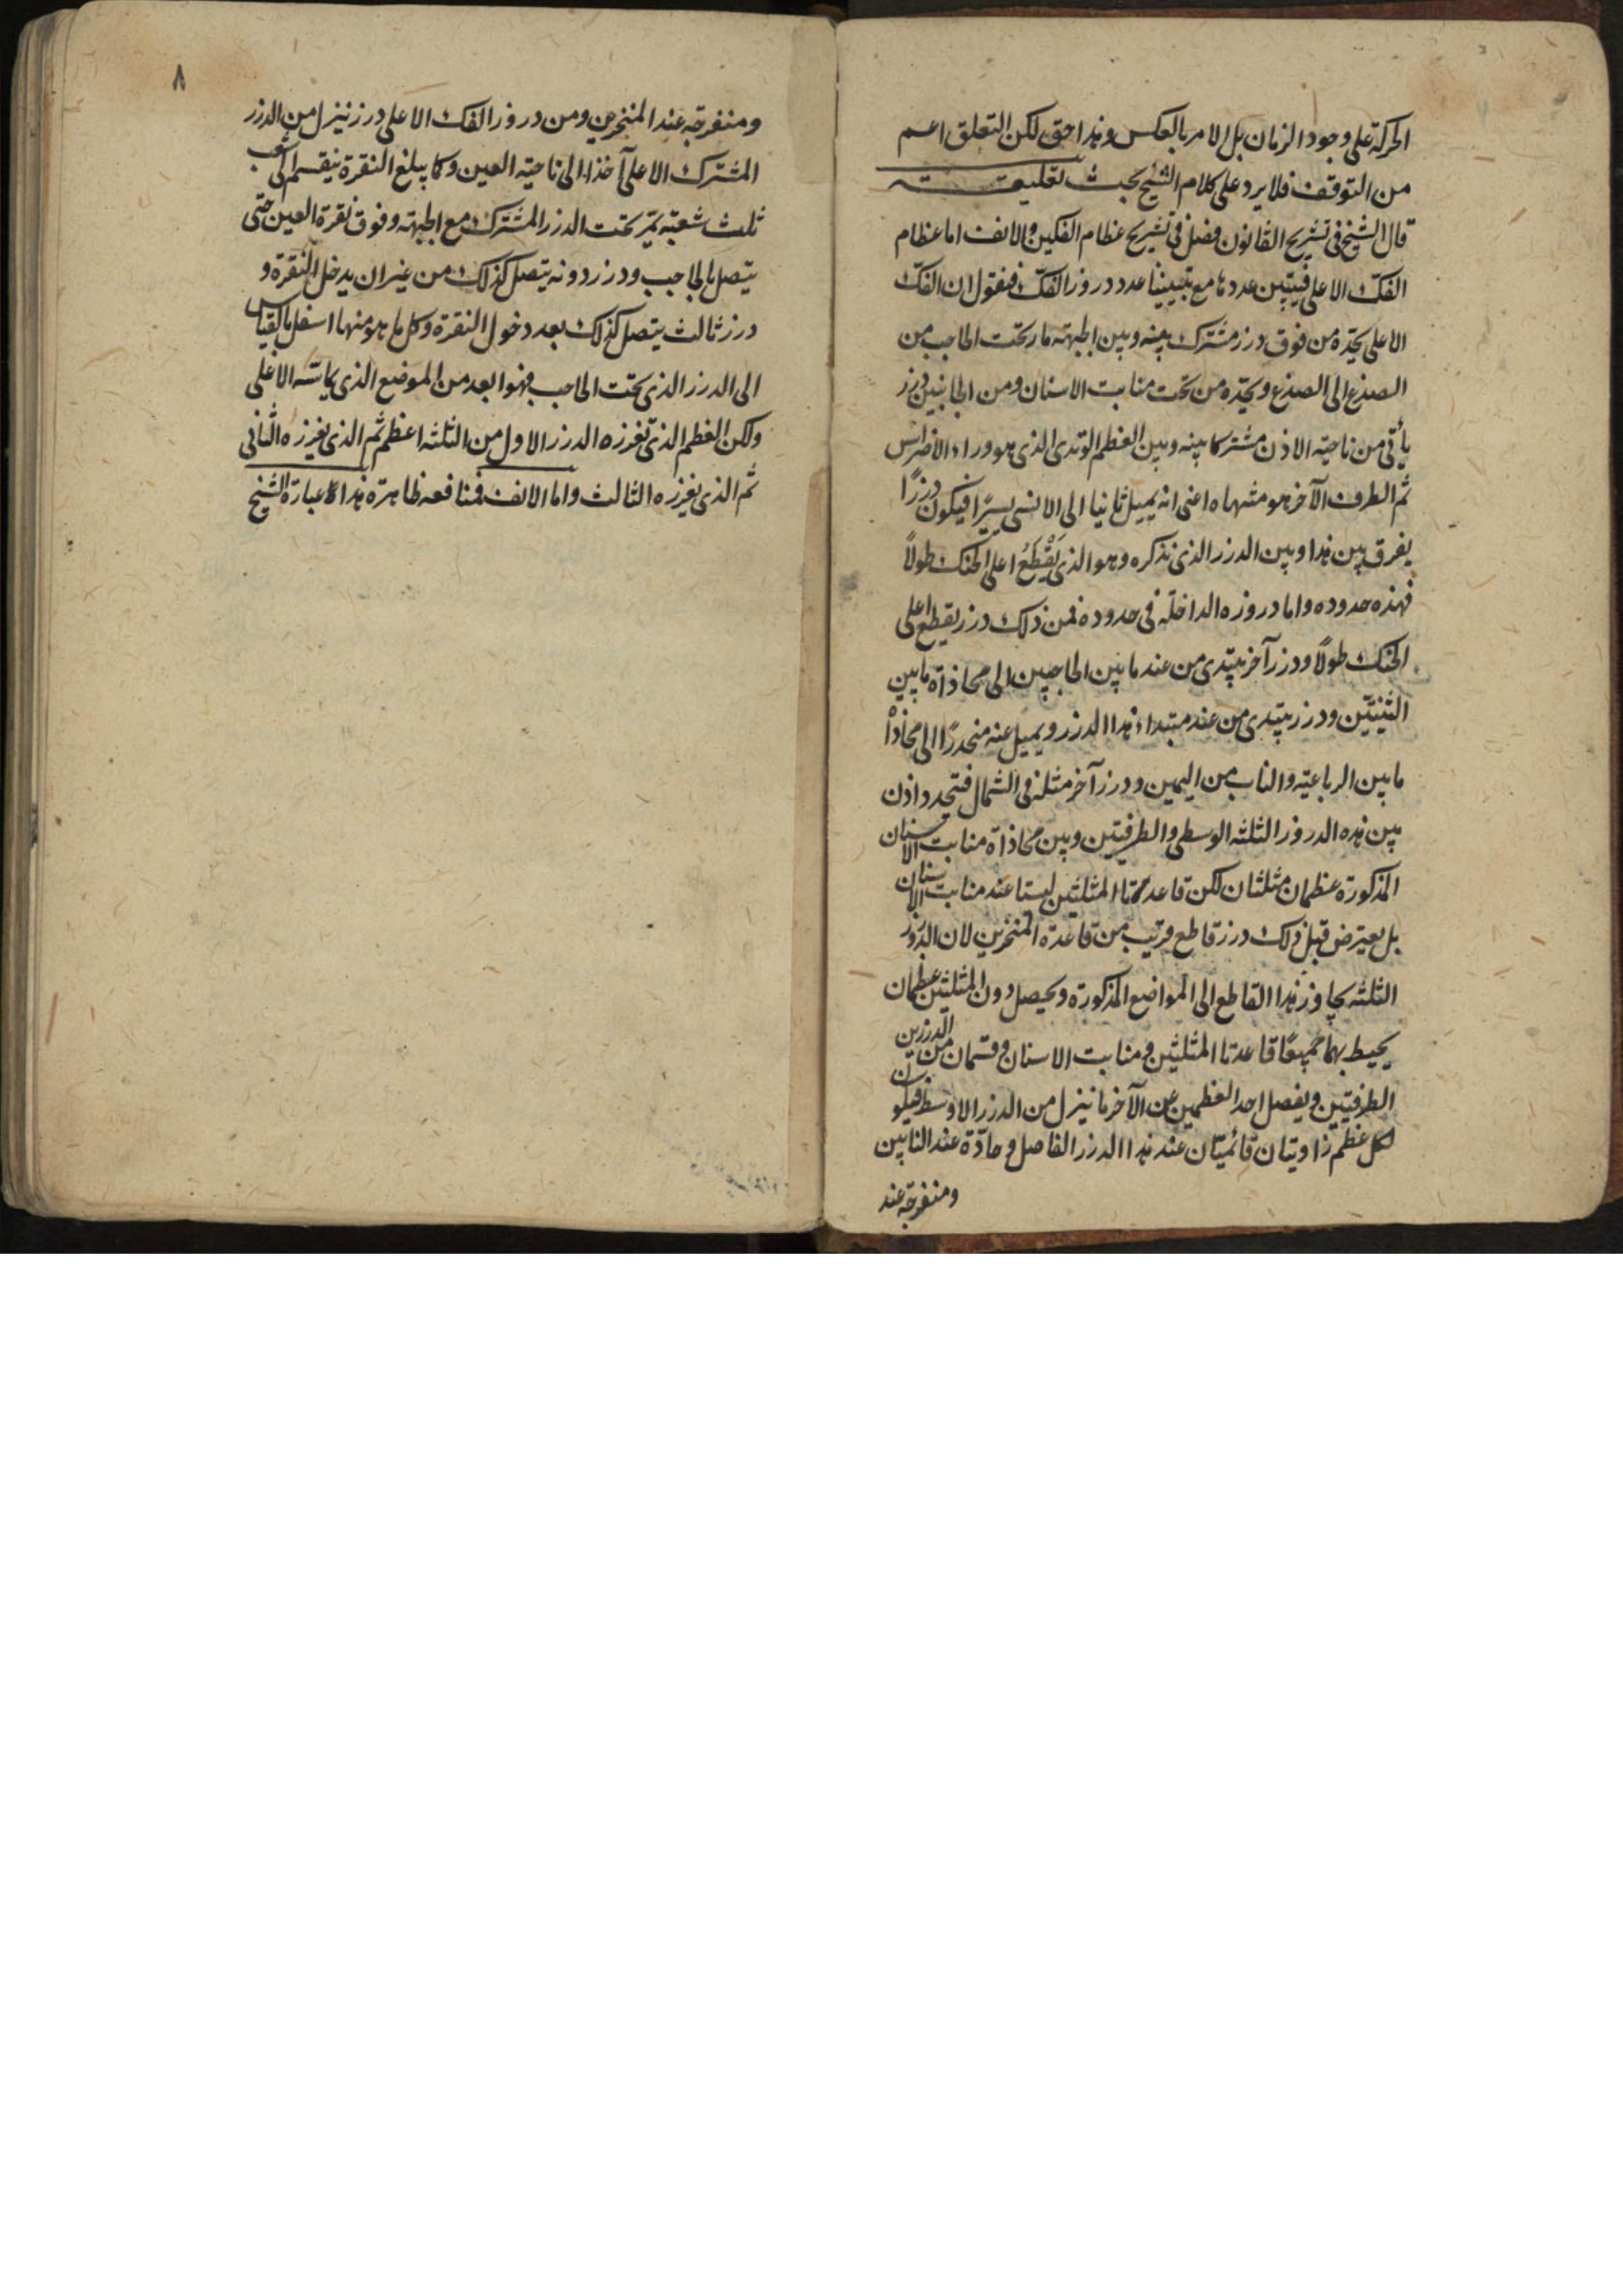 الحركة على وجود الزمان بل الامر بالعكس وهذا حق لكن التعلق اعم
من التوقف فلا يرد على كلام الشيخ بحث تعليقة
قال الشيخ فى تشريح القانون فصل فى تشريح عظام الفكين والانف اما عظام
الفك الاعلى فيتبين عددها مع تبييننا عدد دروز الفك فنقول ان الفك
الاعلى يحده من فوق درز مشترك بينه وبين الجبهة مار تحت الحاجب من
الصدغ الى الصدغ ويحده من تحت منابت الاسنان ومن الجانبين درز
يأتى من ناحية الاذن مشتركا بينه وبين العظم الوتدى الذى هو وراء الاضراس
ثم الطرف الآخر هو منتهاه اعنى انه يميل ثانيا الى الانسى يسيرًا فيكون درزًا
يفرق بين هذا وبين الدرز الذى نذكره وهو الذى يَقْطَعُ اعلى الحنك طولًا
فهذه حدوده واما دروزه الداخلة فى حدوده فمن ذلك درز يقطع اعلى
الحنك طولًا ودرز آخر يبتدى من عند ما بين الحاجبين الى محاذاة ما بين
الثنيتين ودرز يبتدى من عند مبتداء هذا الدرز ويميل عنه منحدرًا الى محاذاة
ما بين الرباعية والناب من اليمين ودرز آخر مثله فى الشمال فتحدد اذن
بين هذه الدروز الثلثة الوسطى والطرفيتين وبين محاذاة منابت الاسنان
المذكورة عظمان مثلثان لكن قاعدتا المثلثين ليستا عند منابت الاسنان
بل يعترض قبل ذلك درز قاطع قريب من قاعدة المنخرين لان الدروز
الثلثة تجاوز هذا القاطع الى المواضع المذكورة ويحصل دون المثلثين عظمان
يحيط بهما جميعًا قاعدتا المثلثين ومنابت الاسنان وقسمان من الدرزين
الطرفيتين ويفصل احد العظمين عن الآخر ما ينزل من الدرز الاوسط فيكون
لكل عظم زاويتان قائمتان عند هذا الدرز الفاصل وحادّة عند النابين
ومنفرجة عند
٨
ومنفرجة عند المنخرين ومن دروز الفك الاعلى درز ينزل من الدرز
المشترك الاعلى آخذا الى ناحية العين وكما يبلغ النقرة ينقسم الى شعب
ثلث شعبة تمر تحت الدرز المشترك مع الجبهة وفوق نقرة العين حتى
يتصل بالحاجب ودرز دونه يتصل كذلك من غير ان يدخل النقرة و
درز ثالث يتصل كذلك بعد دخول النقرة وكل ما هو منها اسفل بالقياس
الى الدرز الذى تحت الحاجب فهو ابعد من الموضع الذى يماسه الاعلى
ولكن العظم الذى تفرزه الدرز الاول من الثلثة اعظم ثم الذى يفرزه الثانى
ثم الذى يفرزه الثالث واما الانف فمنافعه ظاهرة هذا كله عبارة الشيخ